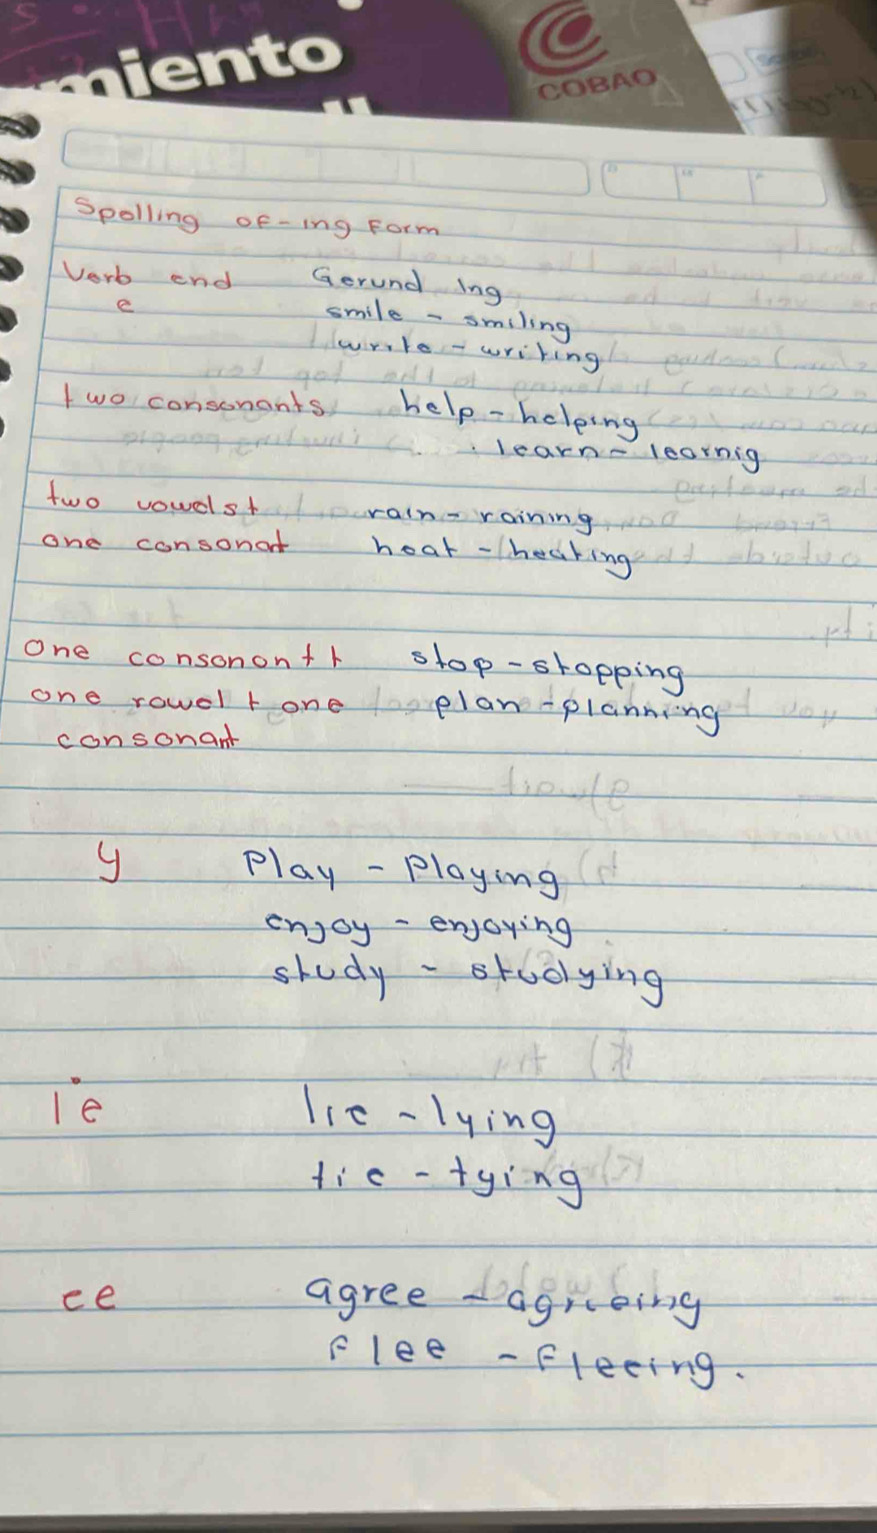 miento
COBAO
Spelling of-ing Form
Verb end Gerund Ing
e smile - smiling
write - writing
two consonants help - helping
learn - learnig
two vowels+ rain - raining
one consonat heat - heating
One consonont+ stop - stopping
one vowel + one plan - planning
consonant
y Play - Playing
enjoy - enjoying
study - studying
ie lie - lying
tie - tying
ee agree - agreeing
Flee - Fleeing.